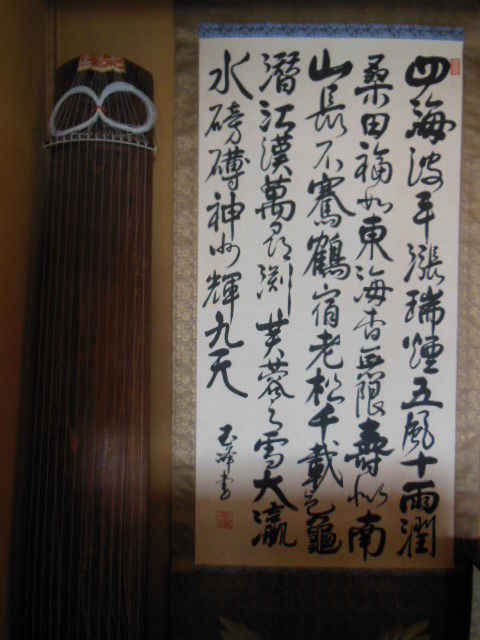 四海波平漲瑞煙五風十雨潤
桑田福如東海杳無限壽似南
山長不騫鶴宿老松千載色龜
潜江漢萬尋渕芙蓉之雪大瀛
水磅礴神州輝九天
玉峰書